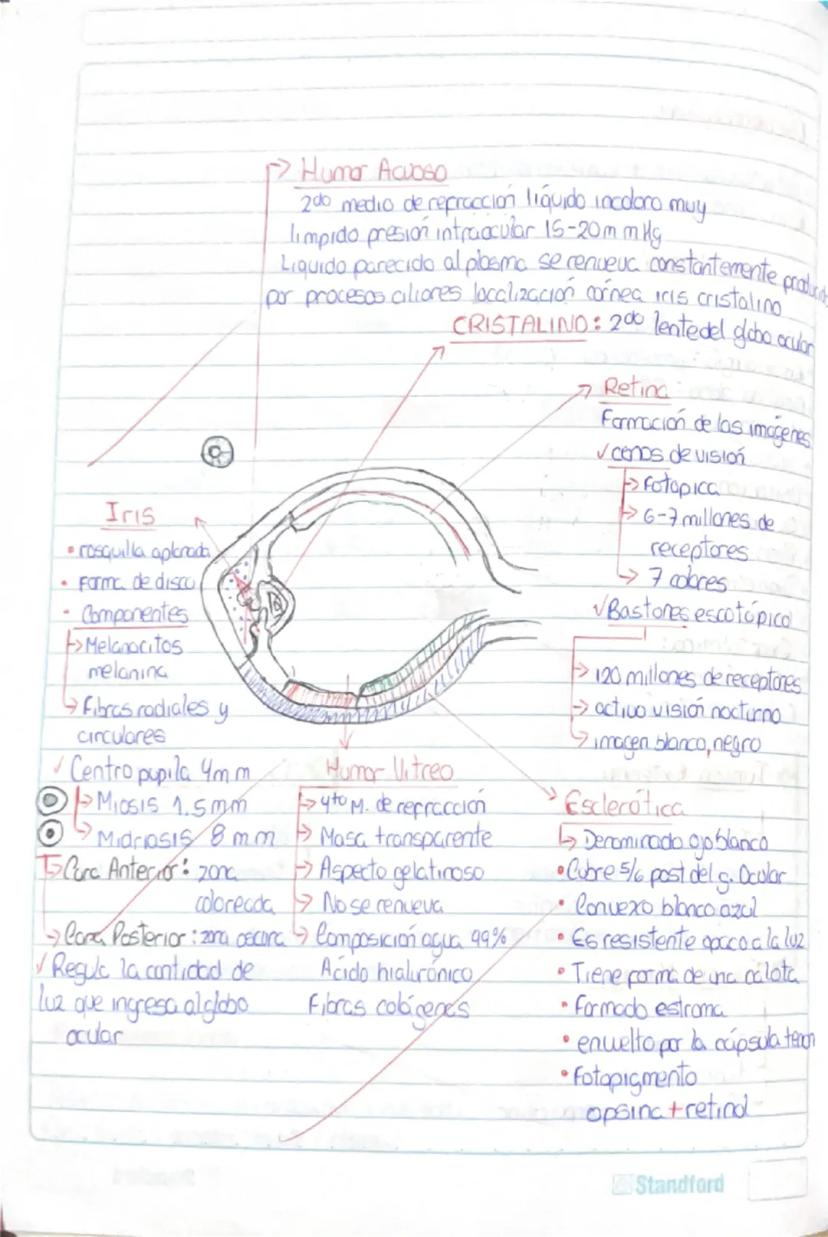 Humor Acuoso
2do medio de refracción líquido incoloro muy
límpido presión intraocular 15-20 m m Hg
Líquido parecido al plasma se renueva constantemente
por procesos ciliares localización córnea iris cristalino
CRISTALINO: 2do lente del globo ocular
Retina
Formación de las imágenes
✓conos de visión
→ Fotopica
→ 6-7 millones de
receptores
→ 7 colores
✓Bastones escotópico
→ 120 millones de receptores
→ activo visión nocturno
→ imagen blanco, negro
Iris
• rosquilla aplanada
• Forma de disco
• Componentes
→ Melanocitos
melanina
→ Fibras radiales y
circulares
✓ Centro pupila 4 m m
→ Miosis 1.5 mm
→ Midriosis 8 mm
→ Cara Anterior: zona
coloreada
→ Cara Posterior: zona oscura
✓ Regula la cantidad de
luz que ingresa al globo
ocular
Humor Vitreo
→ 4to M. de refracción
→ Masa transparente
→ Aspecto gelatinoso
→ No se renueva
→ Composición agua 99%
Ácido hialurónico
Fibras colágenas
Esclerótica
→ Denominado ojo blanco
• Cubre 5/6 post del g. Ocular
• Convexo blanco azul
• Es resistente opaco a la luz
• Tiene forma de una calota
• formado estroma
• envuelto por la cápsula tenon
• Fotopigmento
opsina + retinol
Standford